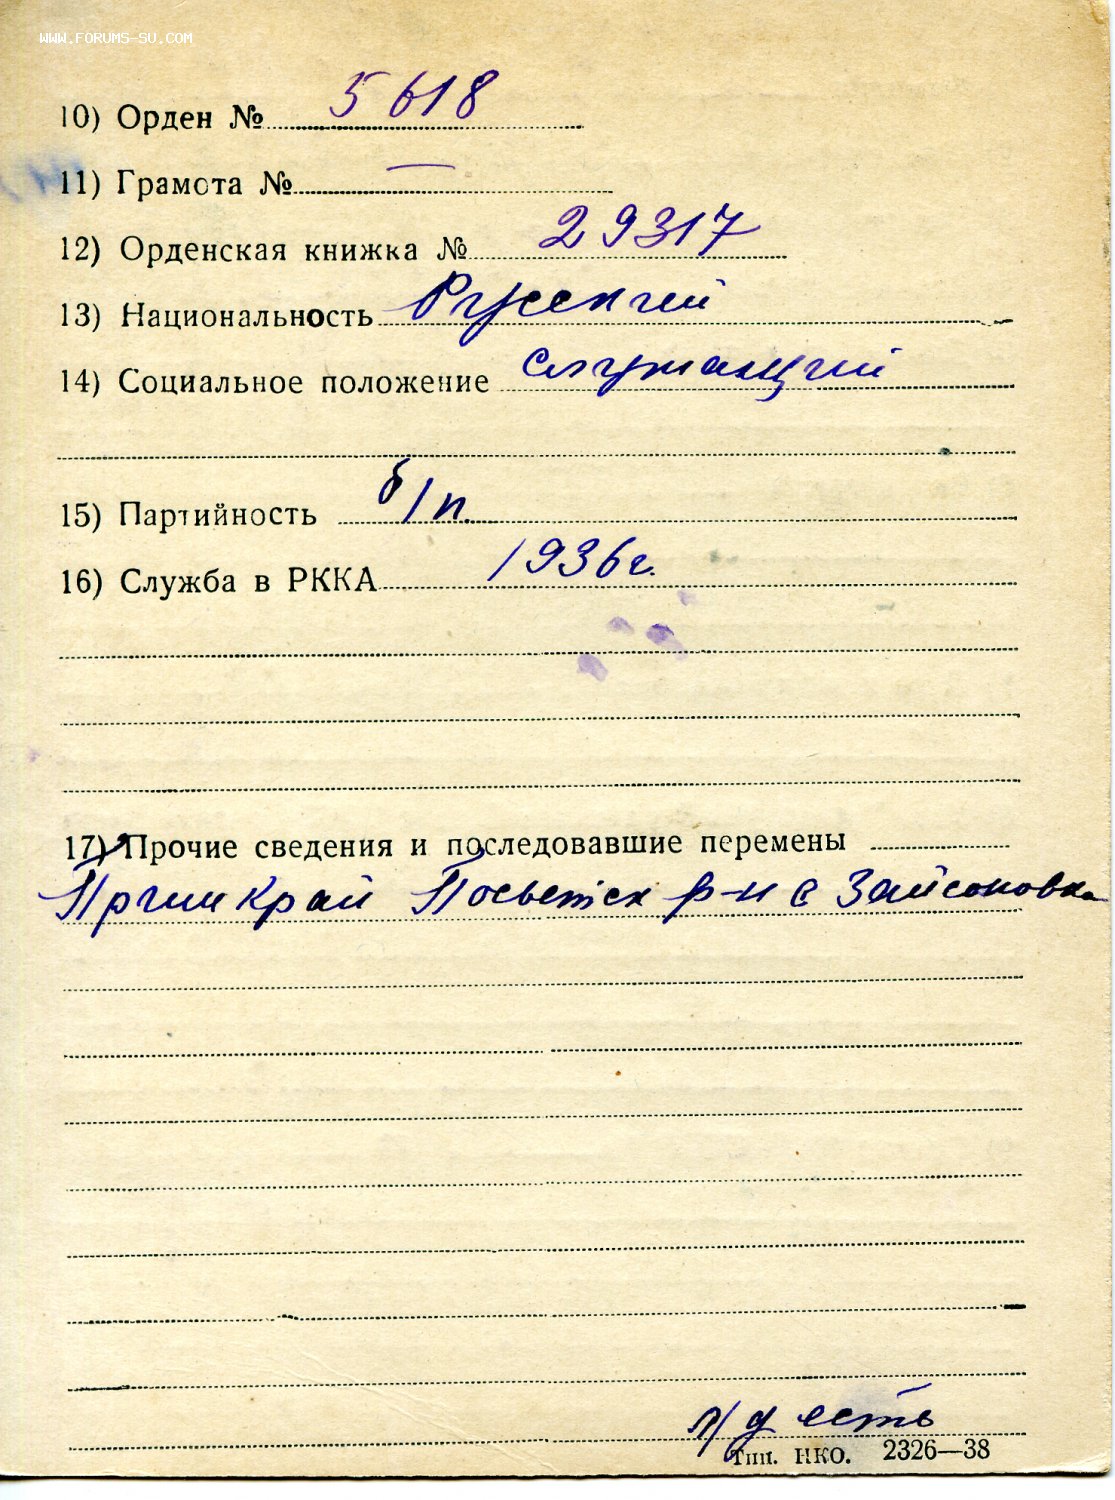 WWW.FORUMS-SU.COM
10) Орден № 5618
11) Грамота № —
12) Орденская книжка № 29317
13) Национальность Русский
14) Социальное положение служащий
15) Партийность б/п.
16) Служба в РККА 1936г.
17) Прочие сведения и последовавшие перемены
Прим Край Посьетск р-н с Зайсановка
л/д есть
Тип. НКО. 2326—38